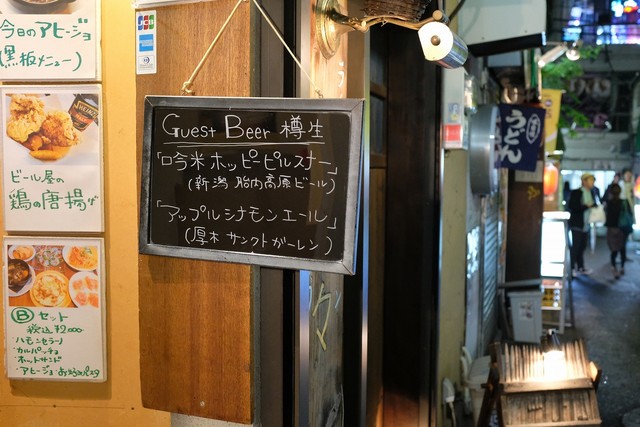 今日のアヒージョ
(黒板メニュー)
ビール屋の
鶏の唐揚げ
HEINZ
Ⓑ セット
税込 ¥2,000-
・ハモンセラーノ
・カルパッチョ
・ホットサンド
・アヒージョ
JCB
Guest Beer 樽生
「吟米ホッピーピルスナー」
(新潟 胎内高原ビール)
「アップルシナモンエール」
(厚木 サンクトガーレン)
うどん